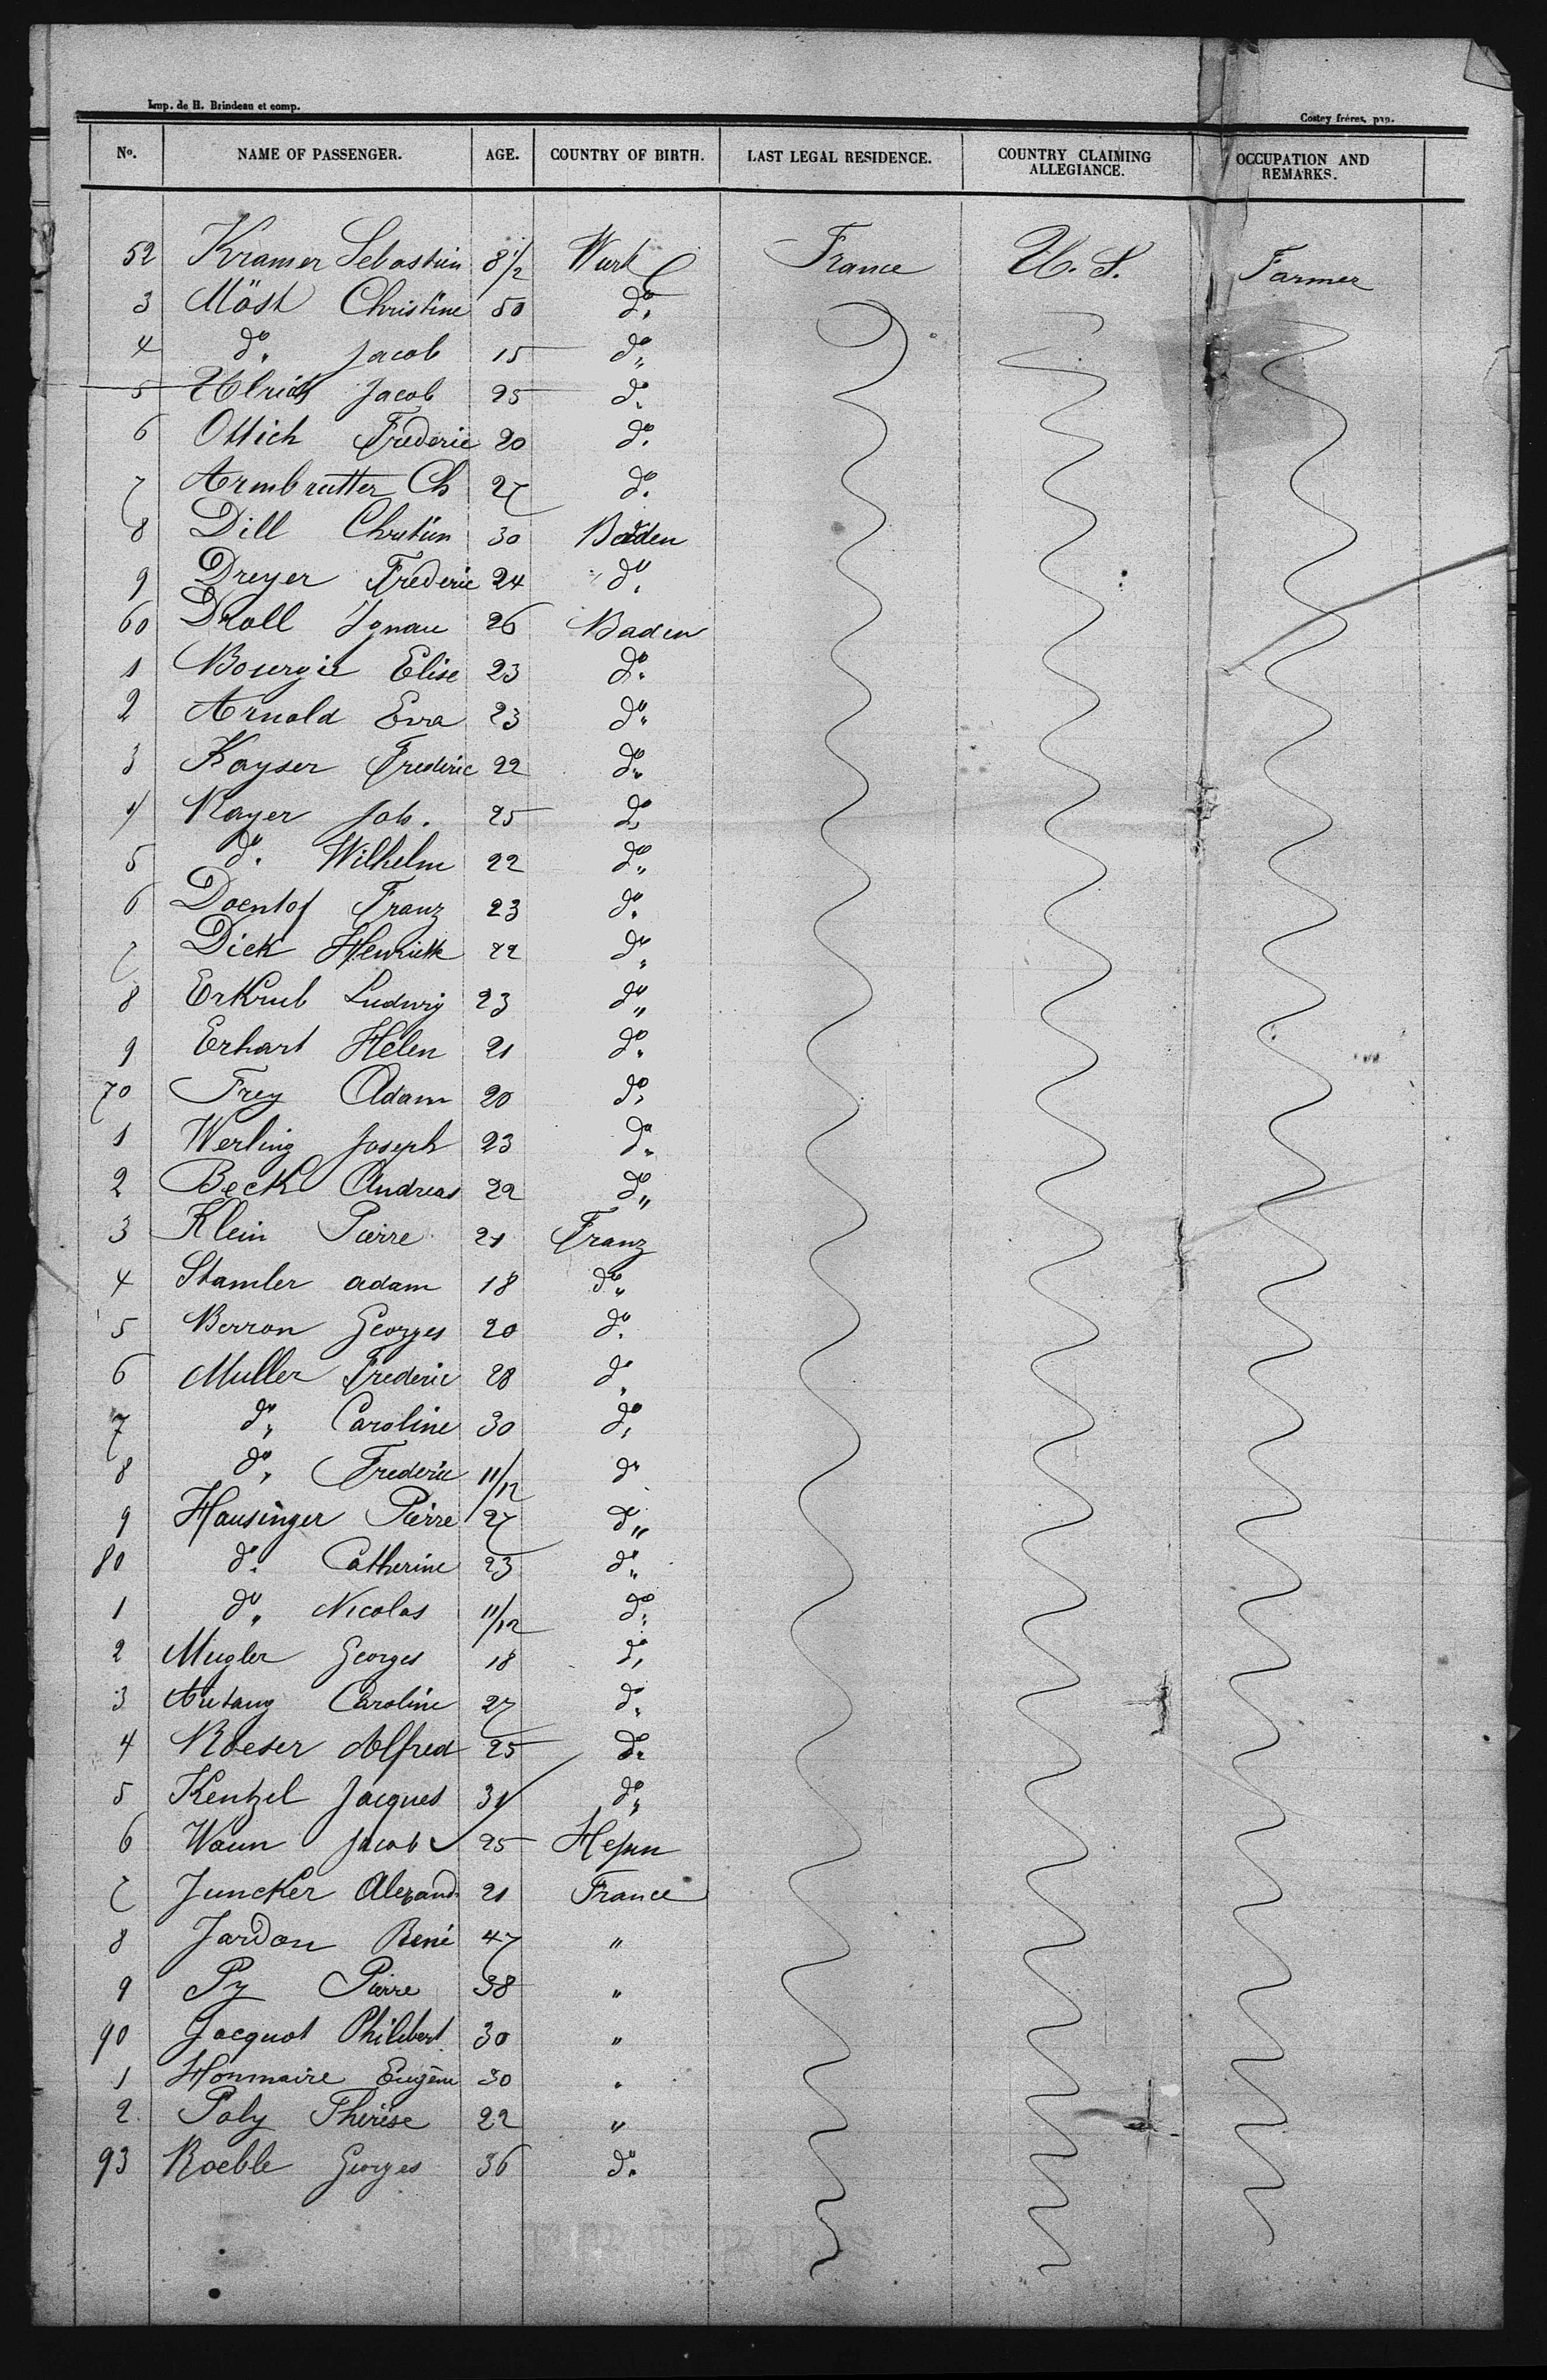 Imp. de H. Brindeau et comp.
Costey frères, pap.
No. NAME OF PASSENGER. AGE. COUNTRY OF BIRTH. LAST LEGAL RESIDENCE. COUNTRY CLAIMING ALLEGIANCE. OCCUPATION AND REMARKS.
52 Kramer Sebastien 8 1/2 Wurt France U. S. Farmer
3 Möst Christine 50 do.
4 do. Jacob 15 do.
5 Ulrich Jacob 25 do.
6 Ottich Frederic 20 do.
7 Armbrutter Ch 27 do.
8 Dill Christien 30 Baden
9 Dreyer Frederic 24 do.
60 Droll Ignace 26 Baden
1 Bourgie Elise 23 do.
2 Arnold Eva 23 do.
3 Kayser Frederic 22 do.
4 Rayer Joh. 25 do.
5 do. Wilhelm 22 do.
6 Franz 23 do.
7 Dick Henriette 22 do.
8 Ludwig 23 do.
9 Erhart Helen 21 do.
70 Frey Adam 20 do.
1 Werling Joseph 23 do.
2 Beck Andreas 22 do.
3 Klein Pierre 21 Franz
4 Stamler adam 18 do.
5 Berron Georges 20 do.
6 Muller Frederic 28 do.
7 do. Caroline 30 do.
8 do. Frederic 11/12 do.
9 Hausinger Pierre 27 do.
80 do. Catherine 23 do.
1 do. Nicolas 11/12 do.
2 Mugler Georges 18 do.
3 Caroline 27 do.
4 Roeser Alfred 25 do.
5 Kentzel Jacques 31 do.
6 Jacob 25 Hessen
7 Juncker Alexand. 21 France
8 Jardon René 47 "
9 Py Pierre 38 "
90 Jacquot Philibert 30 "
1 Hommaire Eugène 30 "
2 Poly Thérèse 22 "
93 Roeble Georges 36 do.